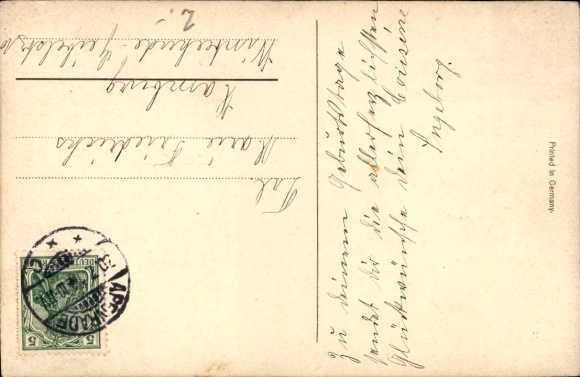 Zu deinem Geburtstage
sendet dir die allerherzlichsten
Glückwünsche dein Cousine
Ingeborg.
Frl.
Marie Friedrichs
Hamburg
Winterhude
2.-
Printed in Germany.
APENRADE
5 5